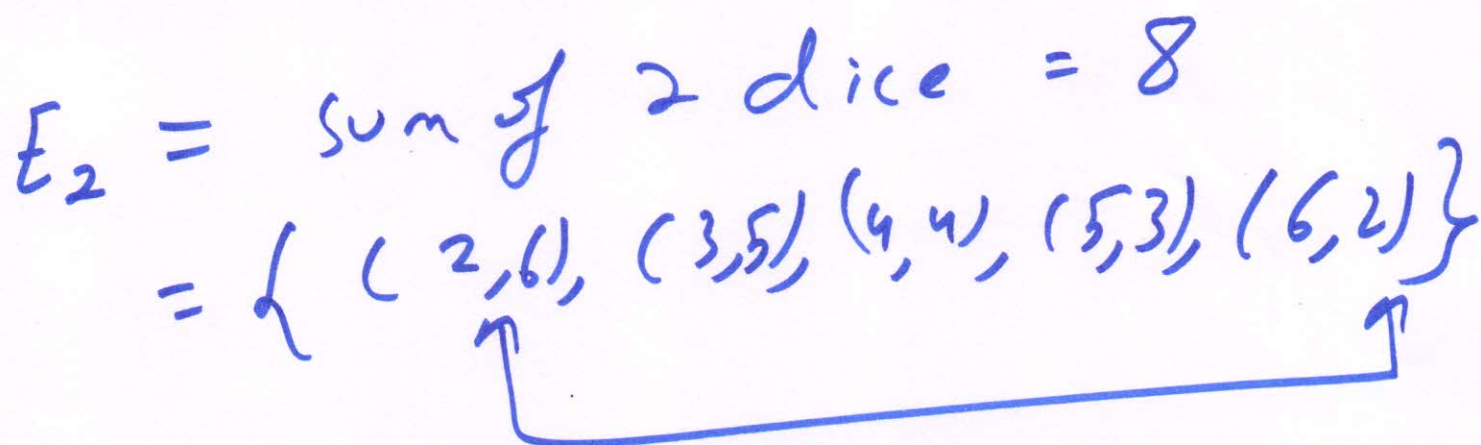 E₂ = sum of 2 dice = 8
= { (2,6), (3,5), (4,4), (5,3), (6,2) }